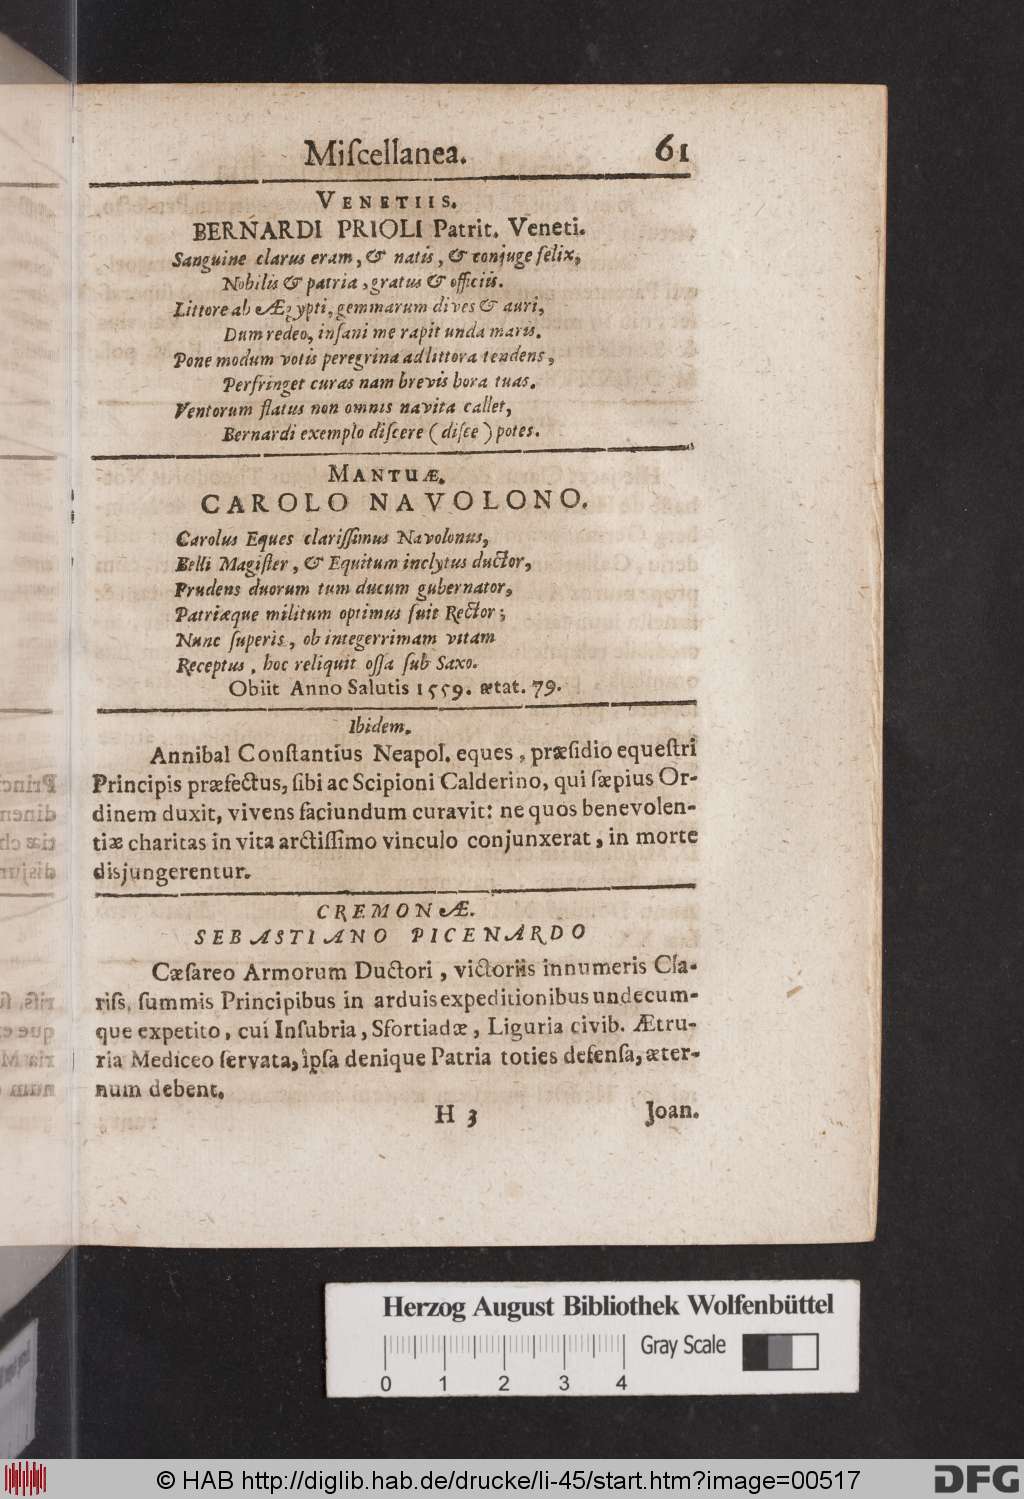 Miſcellanea. 61
VENETIIS.
BERNARDI PRIOLI Patrit. Veneti.
Sanguine clarus eram, & natis, & conjuge felix,
Nobilis & patria, gratus & officiis.
Littore ab Ægypti, gemmarum dives & auri,
Dum redeo, inſani me rapit unda maris.
Pone modum votis peregrina ad littora tendens,
Perfringet curas nam brevis hora tuas.
Ventorum flatus non omnis navita callet,
Bernardi exemplo diſcere (diſce) potes.
MANTUÆ.
CAROLO NAVOLONO.
Carolus Eques clariſſimus Navolonus,
Belli Magiſter, & Equitum inclytus ductor,
Prudens duorum tum ducum gubernator,
Patriæque militum optimus fuit Rector;
Nunc ſuperis, ob integerrimam vitam
Receptus, hoc reliquit oſſa ſub Saxo.
Obiit Anno Salutis 1559. ætat. 79.
Ibidem.
Annibal Conſtantius Neapol. eques, præſidio equeſtri
Principis præfectus, ſibi ac Scipioni Calderino, qui ſæpius Or-
dinem duxit, vivens faciundum curavit: ne quos benevolen-
tiæ charitas in vita arctiſſimo vinculo conjunxerat, in morte
disjungerentur.
CREMONÆ.
SEBASTIANO PICENARDO
Cæſareo Armorum Ductori, victoriis innumeris Cla-
riſs. ſummis Principibus in arduis expeditionibus undecum-
que expetito, cui Inſubria, Sfortiadæ, Liguria civib. Ætru-
ria Mediceo ſervata, ipſa denique Patria toties defenſa, æter-
num debent.
H 3 Joan.
Herzog August Bibliothek Wolfenbüttel
Gray Scale
0 1 2 3 4
© HAB http://diglib.hab.de/drucke/li-45/start.htm?image=00517
DFG